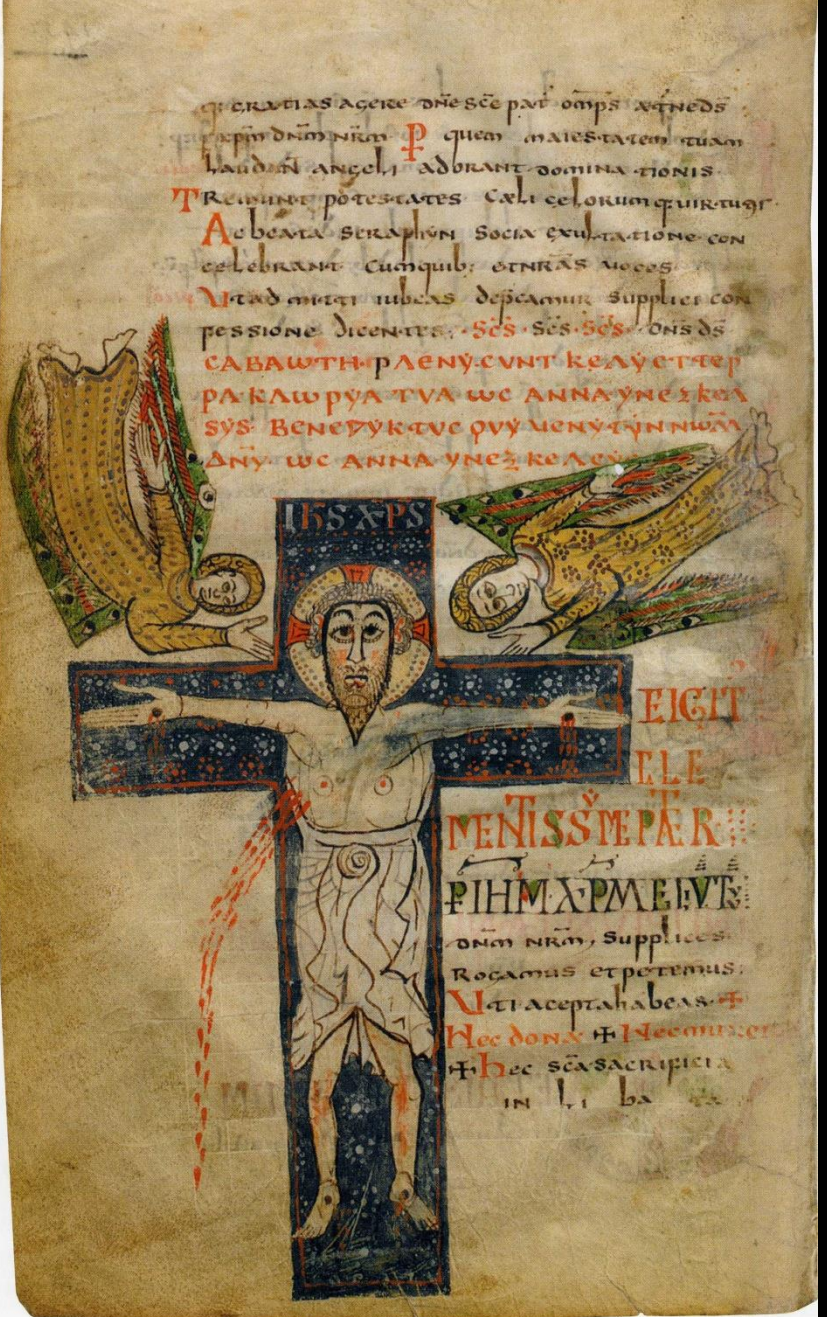 GRATIAS AGERE DNE SCE PAT OMPS AETNE DS
XPM DNM NRM P QUEM MAIESTATEM TUAM
LAUDAN ANGELI ADORANT DOMINATIONIS
TREMUNT POTESTATES CAELI CELORUMQ VIRTUTES
AC BEATA SERAPHYN SOCIA EXULTATIONE CON
CELEBRANT CUM QUIB ET NRAS UOCES
UT ADMITTI IUBEAS DEPCAMUR SUPPLICI CON
FESSIONE DICENTES SCS SCS SCS DNS DS
CABAWTH PΛENY CVNT KEΛY ET TEP
PA KΛWPYA TVA WC ANNA YN EξKEΛ
SYS BENEDYKTVC QVY VENYT YN NWM
DNY WC ANNA YN EξKEΛEYC
IHS XPS
EIGIT
CLE
MENTISSYME PATER
P IHM XPM
DNM NRM, SUPPLICES
ROGAMUS ET PETEMUS
UTI ACEPTA HABEAS +
HEC DONA + HEC MUNERA
+ HEC SCA SACRIFICIA
IN LI BA TA